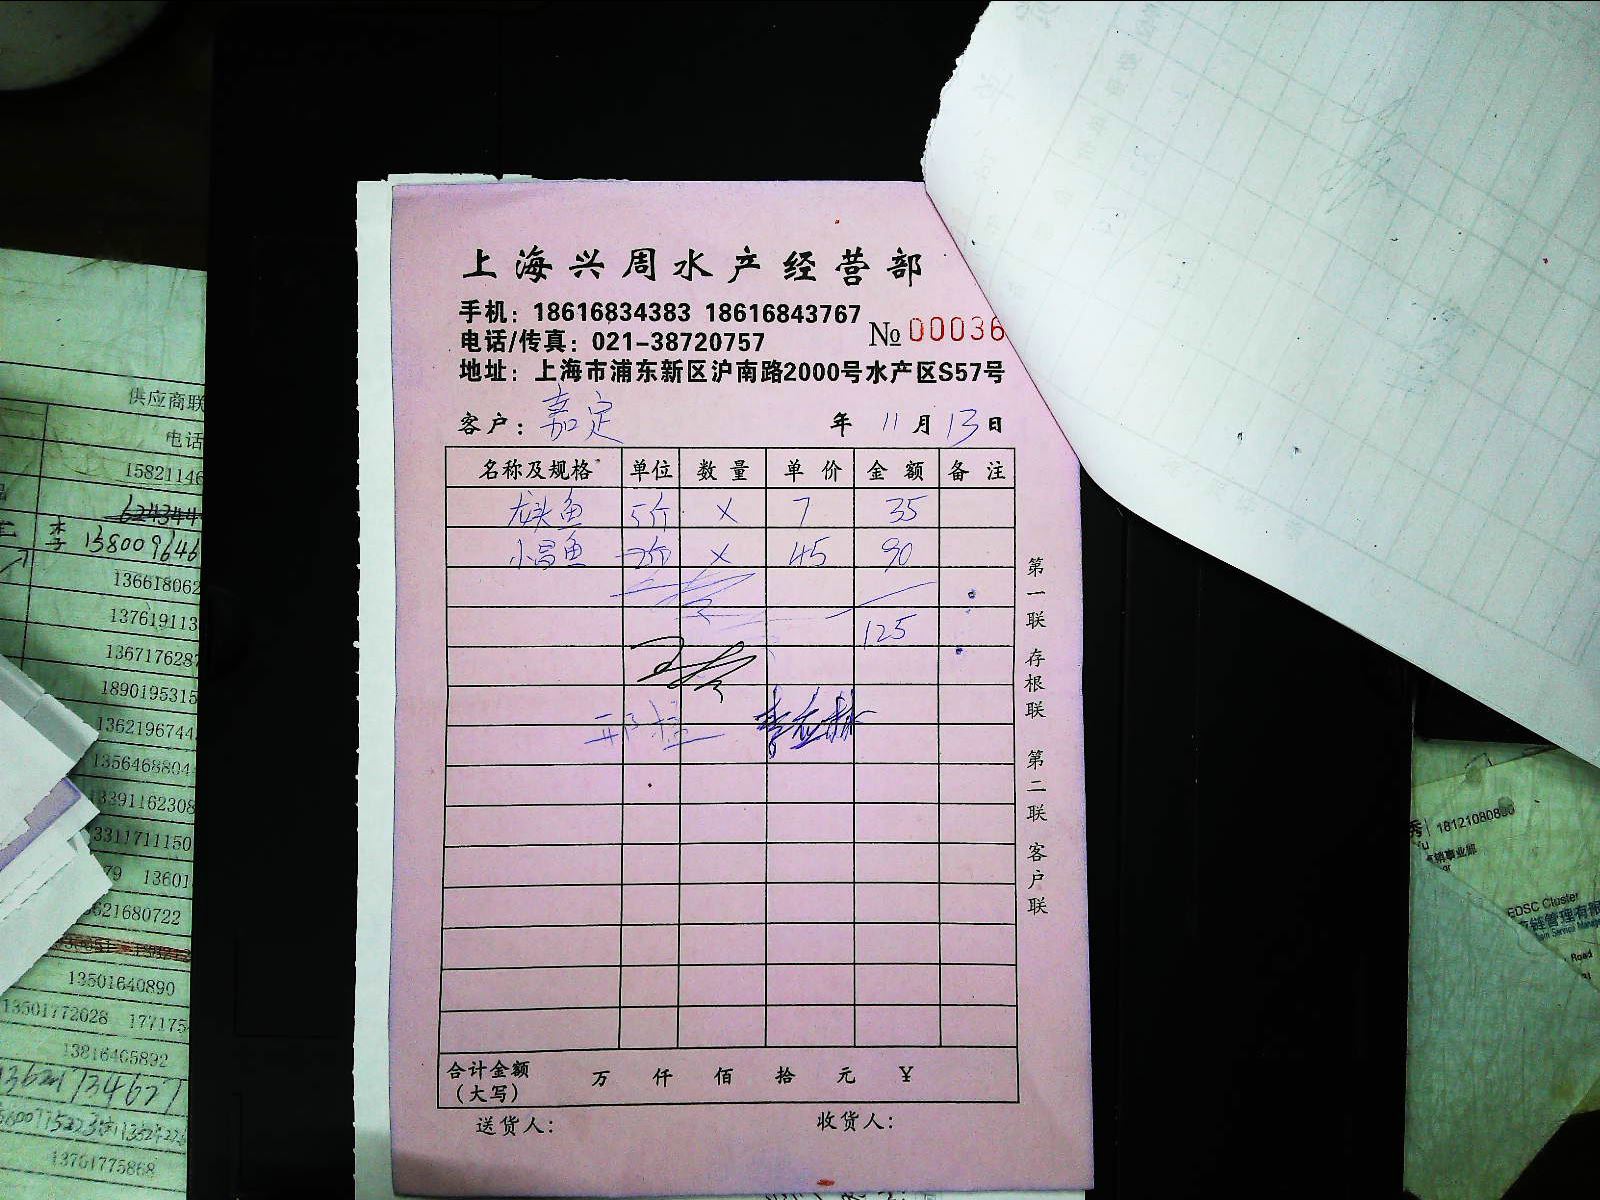 上海兴周水产经营部
手机：18616834383 18616843767
№00036
电话/传真：021-38720757
地址：上海市浦东新区沪南路2000号水产区S57号
客户：嘉定 年 11月13日
名称及规格 单位 数量 单价 金额 备注
龙头鱼 5斤 × 7 35
小昌鱼 2斤 × 45 90
125
第一联 存根联 第二联 客户联
合计金额（大写） 万 仟 佰 拾 元 ¥
送货人： 收货人：
供应商联
电话
15821146
李 158009646
136618062
137619113
136717628
1890195315
1362196744
1356468804
13391162308
3311711150
79 13601
621680722
13501640890
13501772028 177175
13816405892
13621734627
13701775868
秀 18121080800
销事业部
EDSC Cluster
链管理有限
Road